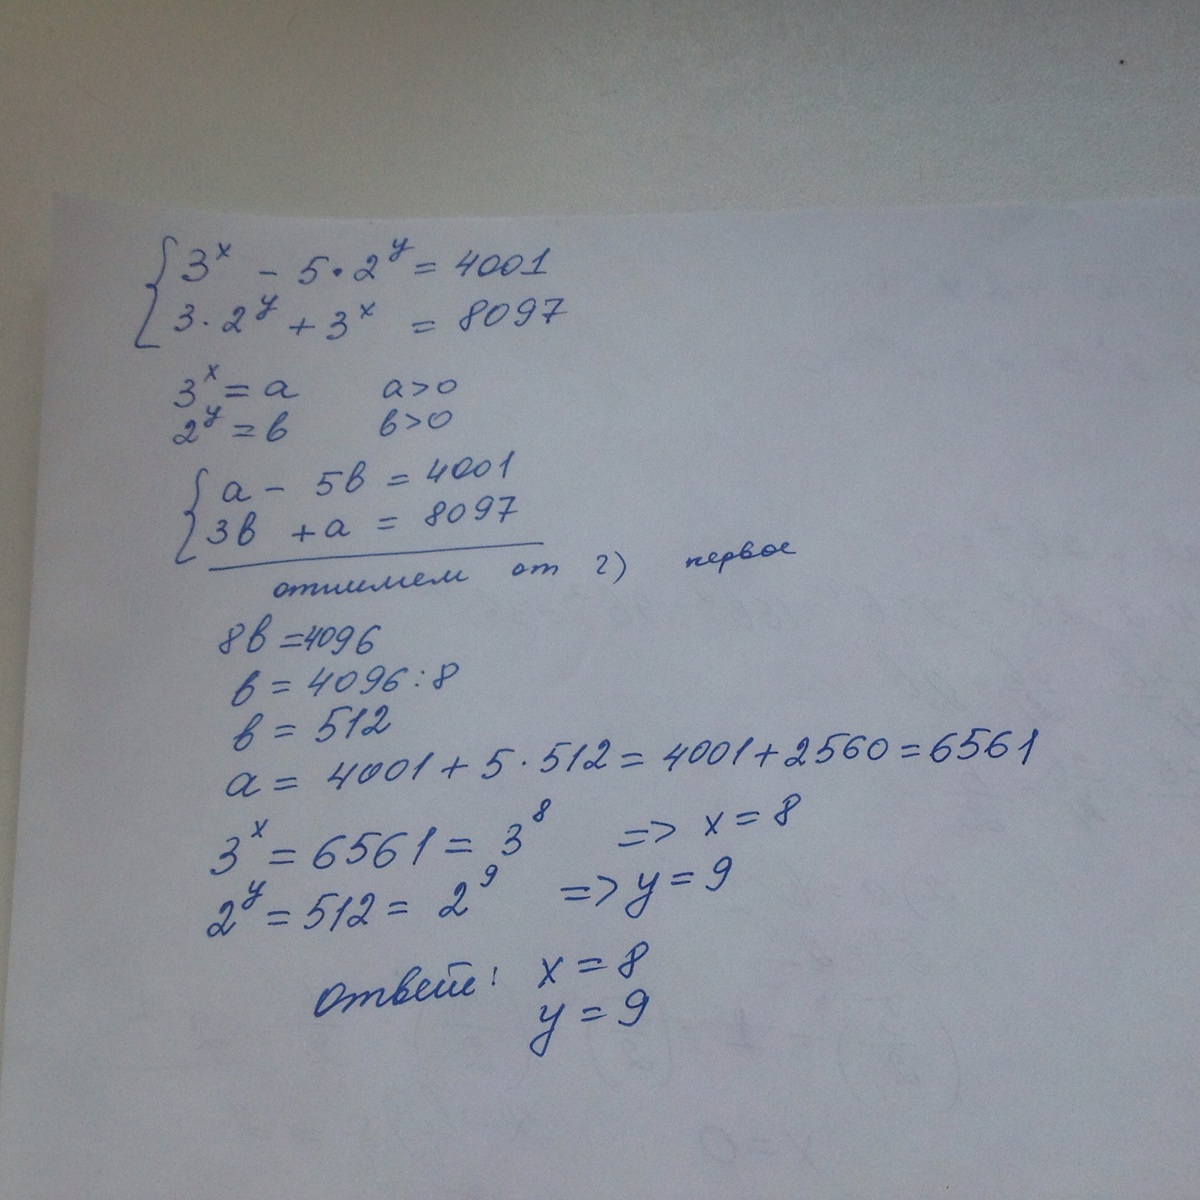 3ˣ - 5·2ʸ = 4001
3·2ʸ + 3ˣ = 8097
3ˣ = a a>0
2ʸ = в в>0
a - 5в = 4001
3в + a = 8097
отнимем от 2) первое
8в = 4096
в = 4096 : 8
в = 512
a = 4001 + 5·512 = 4001 + 2560 = 6561
3ˣ = 6561 = 3⁸ => x = 8
2ʸ = 512 = 2⁹ => y = 9
ответ: x = 8
y = 9